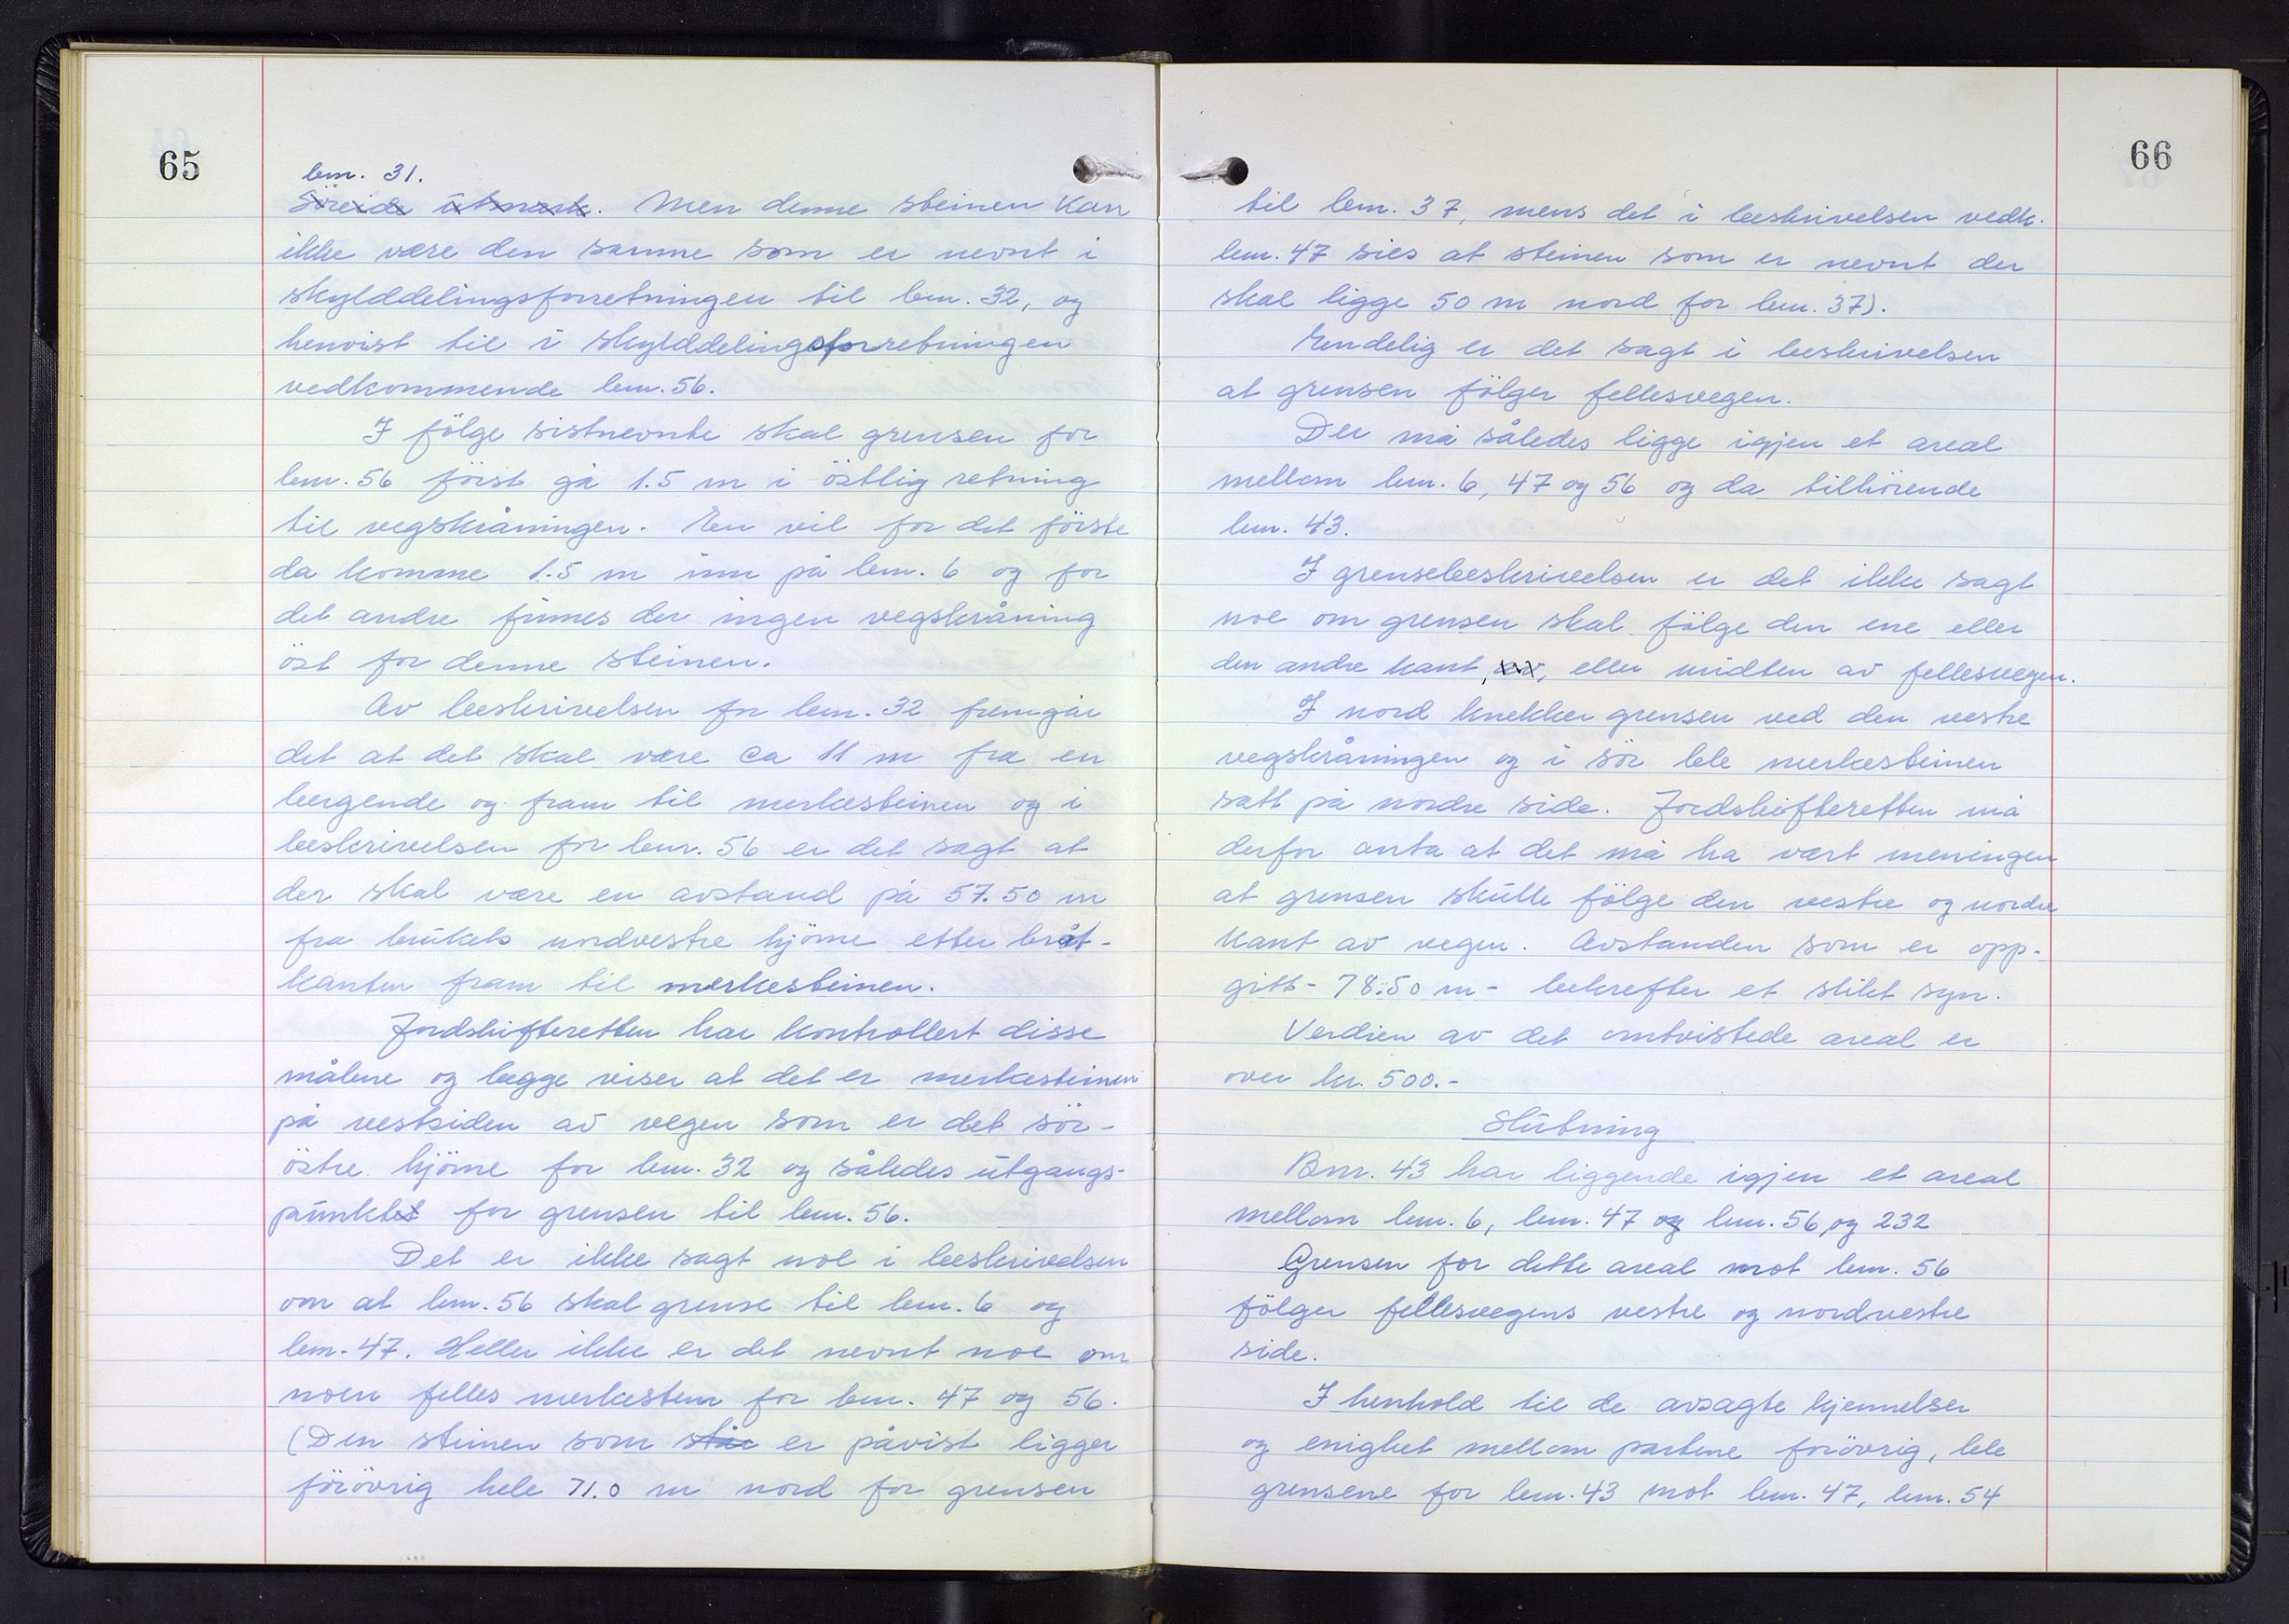 65
bnr. 31.
Söreide utmark. Men denne steinen kan
ikke være den samme som er nevnt i
skylddelingsforretningen til bnr. 32, og
henvist til i skylddelingsforretningen
vedkommende bnr. 56.
I fölge sistnevnte skal grensen for
bnr. 56 först gå 1.5 m i östlig retning
til vegskråningen. En vil for det förste
da komme 1.5 m inn på bnr. 6 og for
det andre finnes der ingen vegskråning
öst for denne steinen.
Av beskrivelsen for bnr. 32 fremgår
det at det skal være ca 11 m fra en
bergende og fram til merkesteinen og i
beskrivelsen for bnr. 56 er det sagt at
der skal være en avstand på 57.50 m
fra brukets nordvestre hjörne etter bråt-
kanten fram til merkesteinen.
Jordskifteretten har kontrollert disse
målene og begge viser at det er merkesteinen
på vestsiden av vegen som er det sör-
östre hjörne for bnr. 32 og således utgangs-
punktet for grensen til bnr. 56.
Det er ikke sagt noe i beskrivelsen
om at bnr. 56 skal grense til bnr. 6 og
bnr. 47. Heller ikke er det nevnt noe om
noen felles merkestein for bnr. 47 og 56.
(Den steinen som står er påvist ligger
forövrig hele 71.0 m nord for grensen
66
til bnr. 37, mens det i beskrivelsen vedk.
bnr. 47 sies at steinen som er nevnt der
skal ligge 50 m nord for bnr. 37).
Endelig er det sagt i beskrivelsen
at grensen fölger fellesvegen.
Der må således ligge igjen et areal
mellom bnr. 6, 47 og 56 og da tilhörende
bnr. 43.
I grensebeskrivelsen er det ikke sagt
noe om grensen skal fölge den ene eller
den andre kant, av, eller midten av fellesvegen.
I nord knekker grensen ved den vestre
vegskråningen og i sör ble merkesteinen
satt på nordre side. Jordskifteretten må
derfor anta at det må ha vært meningen
at grensen skulle fölge den vestre og nordre
kant av vegen. Avstanden som er opp-
gitt - 78.50 m - bekrefter et slikt syn.
Verdien av det omtvistede areal er
over kr. 500.-
Slutning
Bnr. 43 har liggende igjen et areal
mellom bnr. 6, bnr. 47 og bnr. 56, og 232
Grensen for dette areal mot bnr. 56
fölger fellesvegens vestre og nordvestre
side.
I henhold til de avsagte kjennelser
og enighet mellom partene forövrig, ble
grensene for bnr. 43 mot bnr. 47, bnr. 54